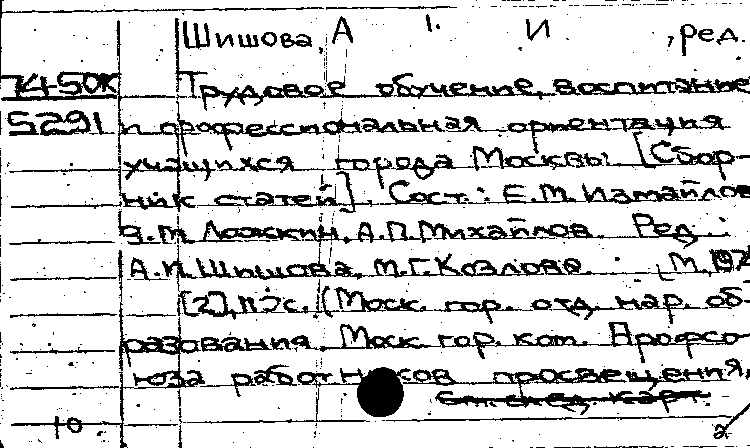 Шишова, А. И., ред.
74-50К Трудовое обучение, воспитание
5291 и профессиональная ориентация
учащихся города Москвы. [Сбор-
ник статей]. Сост.: Е.М. Измайлов
З.М. А.П. Михайлов. Ред.:
А.И. Шишова, М.Г. Козлова. М.,
(Моск. гор. отд. нар. об-
разования. Моск. гор. ком. Профсо-
юза работников просвещения,
См. след. карт.
10 2